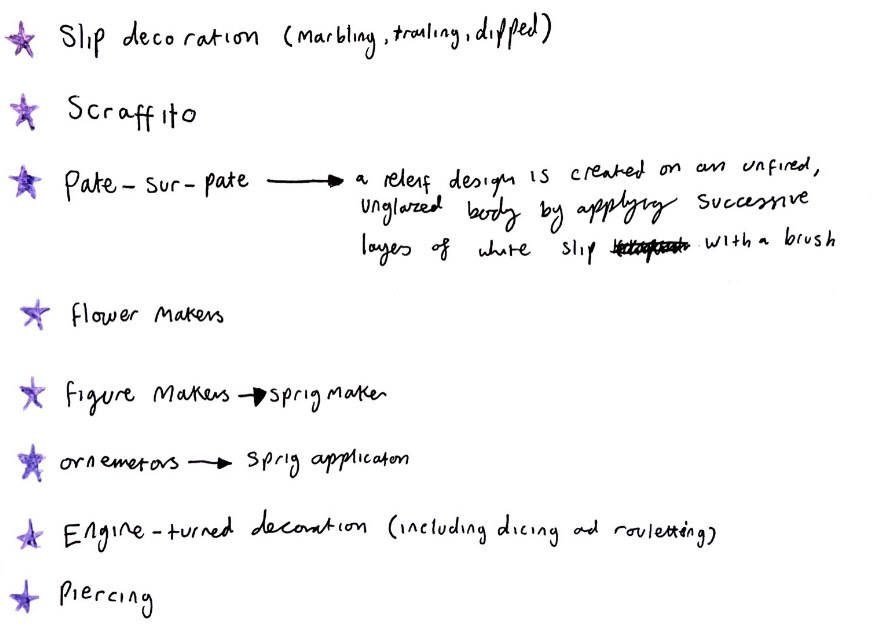 Slip decoration (Marbling, trailing, dipped)
Scraffito
Pate-sur-pate → a releif design is created on an unfired,
unglazed body by applying successive
layes of white slip with a brush
flower Makers
figure Makers → sprig maker
ornemetors → sprig applicaton
Engine-turned decoration (including dicing ad rouletting)
Piercing